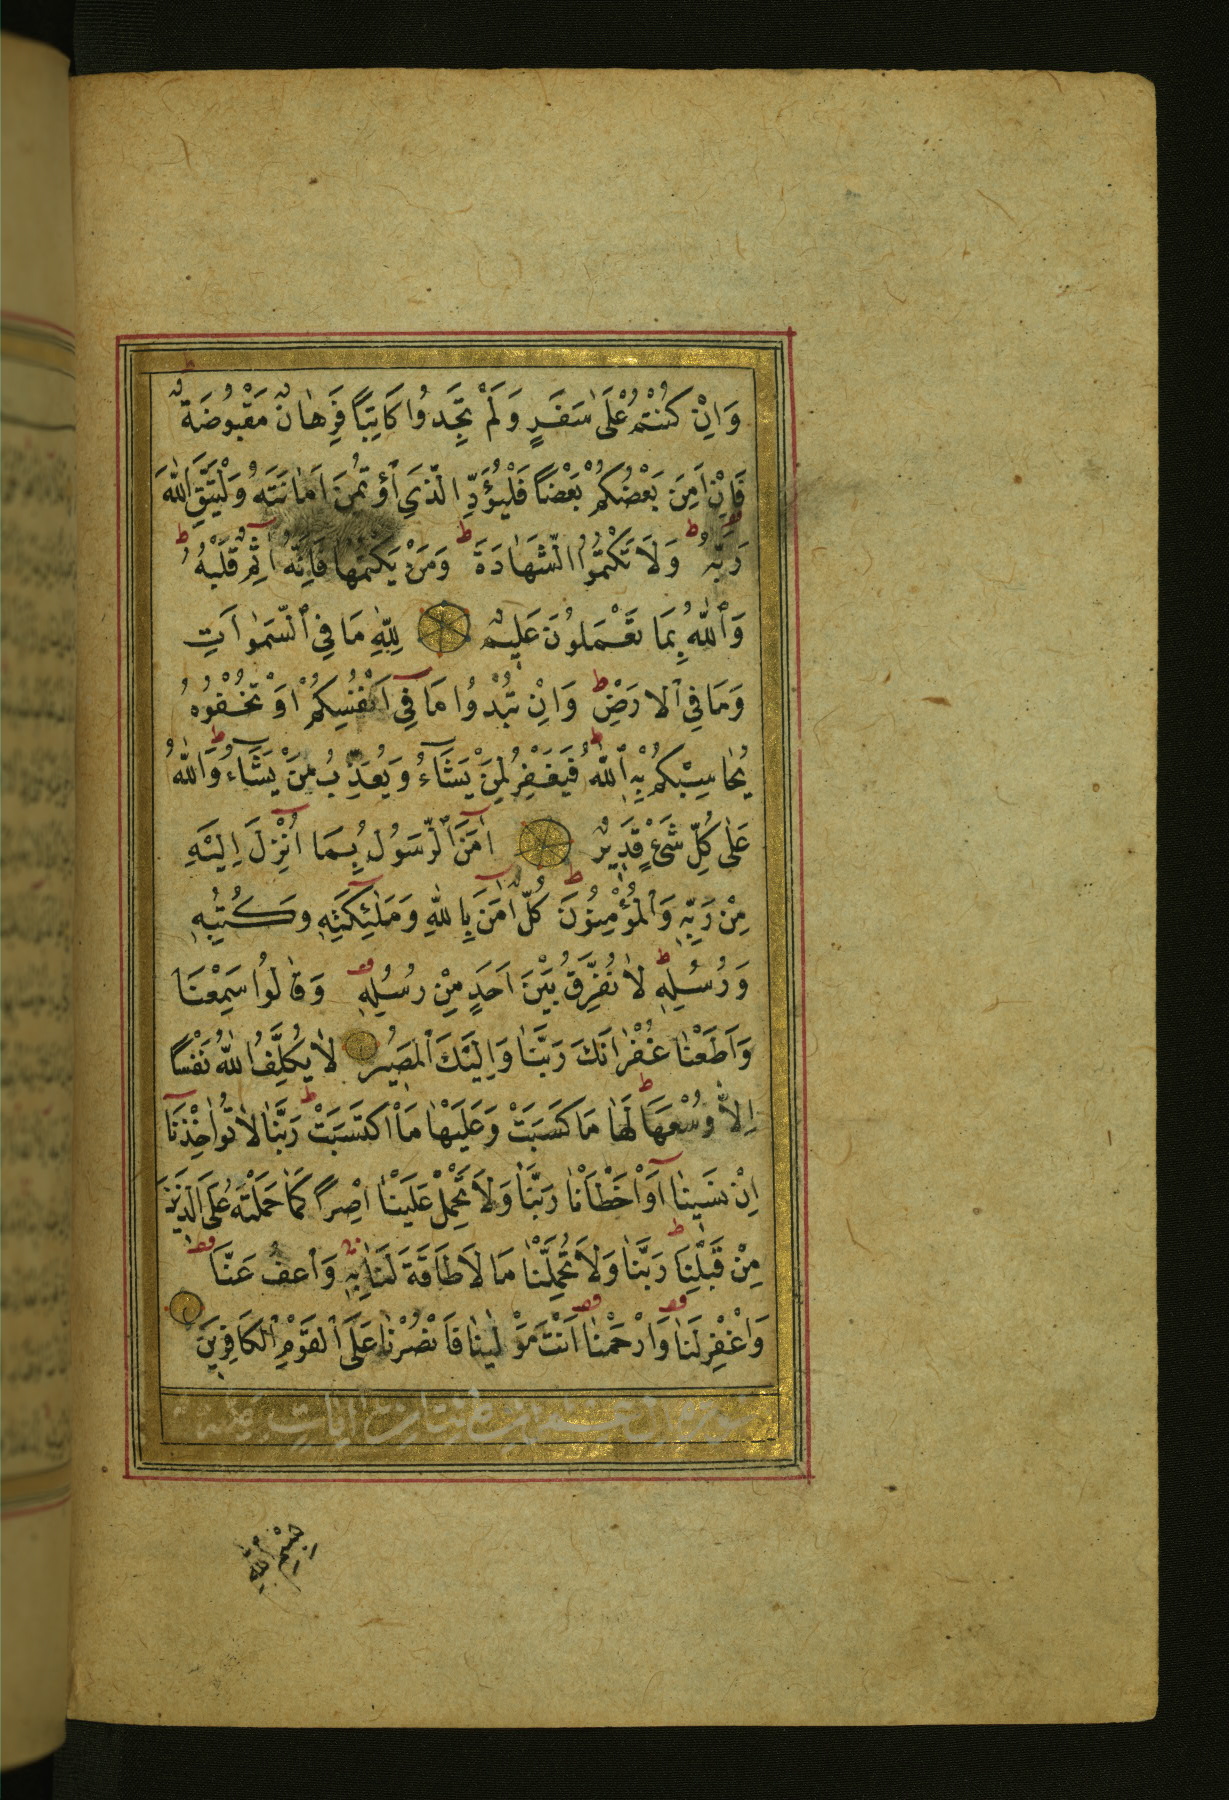 وَاِنْ كُنْتُمْ عَلٰى سَفَرٍ وَلَمْ تَجِدُوا كَاتِبًا فَرِهَانٌ مَقْبُوضَةٌ
فَاِنْ اَمِنَ بَعْضُكُمْ بَعْضًا فَلْيُؤَدِّ الَّذِي اؤْتُمِنَ اَمَانَتَهُ وَلْيَتَّقِ اللّٰهَ
رَبَّهُ ط وَلَا تَكْتُمُوا الشَّهَادَةَ ط وَمَنْ يَكْتُمْهَا فَاِنَّهُ اٰثِمٌ قَلْبُهُ ط
وَاللّٰهُ بِمَا تَعْمَلُونَ عَلِيمٌ لِلّٰهِ مَا فِي السَّمٰوَاتِ
وَمَا فِي الْاَرْضِ ط وَاِنْ تُبْدُوا مَا فِي اَنْفُسِكُمْ اَوْ تُخْفُوهُ
يُحَاسِبْكُمْ بِهِ اللّٰهُ ط فَيَغْفِرُ لِمَنْ يَشَاءُ وَيُعَذِّبُ مَنْ يَشَاءُ ط وَاللّٰهُ
عَلٰى كُلِّ شَيْءٍ قَدِيرٌ اٰمَنَ الرَّسُولُ بِمَا اُنْزِلَ اِلَيْهِ
مِنْ رَبِّهِ وَالْمُؤْمِنُونَ ط كُلٌّ اٰمَنَ بِاللّٰهِ وَمَلٰئِكَتِهِ وَكُتُبِهِ
وَرُسُلِهِ ط لَا نُفَرِّقُ بَيْنَ اَحَدٍ مِنْ رُسُلِهِ قف وَقَالُوا سَمِعْنَا
وَاَطَعْنَا غُفْرَانَكَ رَبَّنَا وَاِلَيْكَ الْمَصِيرُ لَا يُكَلِّفُ اللّٰهُ نَفْسًا
اِلَّا وُسْعَهَا ط لَهَا مَا كَسَبَتْ وَعَلَيْهَا مَا اكْتَسَبَتْ ط رَبَّنَا لَا تُؤَاخِذْنَا
اِنْ نَسِينَا اَوْ اَخْطَاْنَا رَبَّنَا وَلَا تَحْمِلْ عَلَيْنَا اِصْرًا كَمَا حَمَلْتَهُ عَلَى الَّذِينَ
مِنْ قَبْلِنَا ط رَبَّنَا وَلَا تُحَمِّلْنَا مَا لَا طَاقَةَ لَنَا بِهِ وَاعْفُ عَنَّا قف
وَاغْفِرْ لَنَا قف وَارْحَمْنَا قف اَنْتَ مَوْلٰينَا فَانْصُرْنَا عَلَى الْقَوْمِ الْكَافِرِينَ
بِسْمِ اللّٰهِ